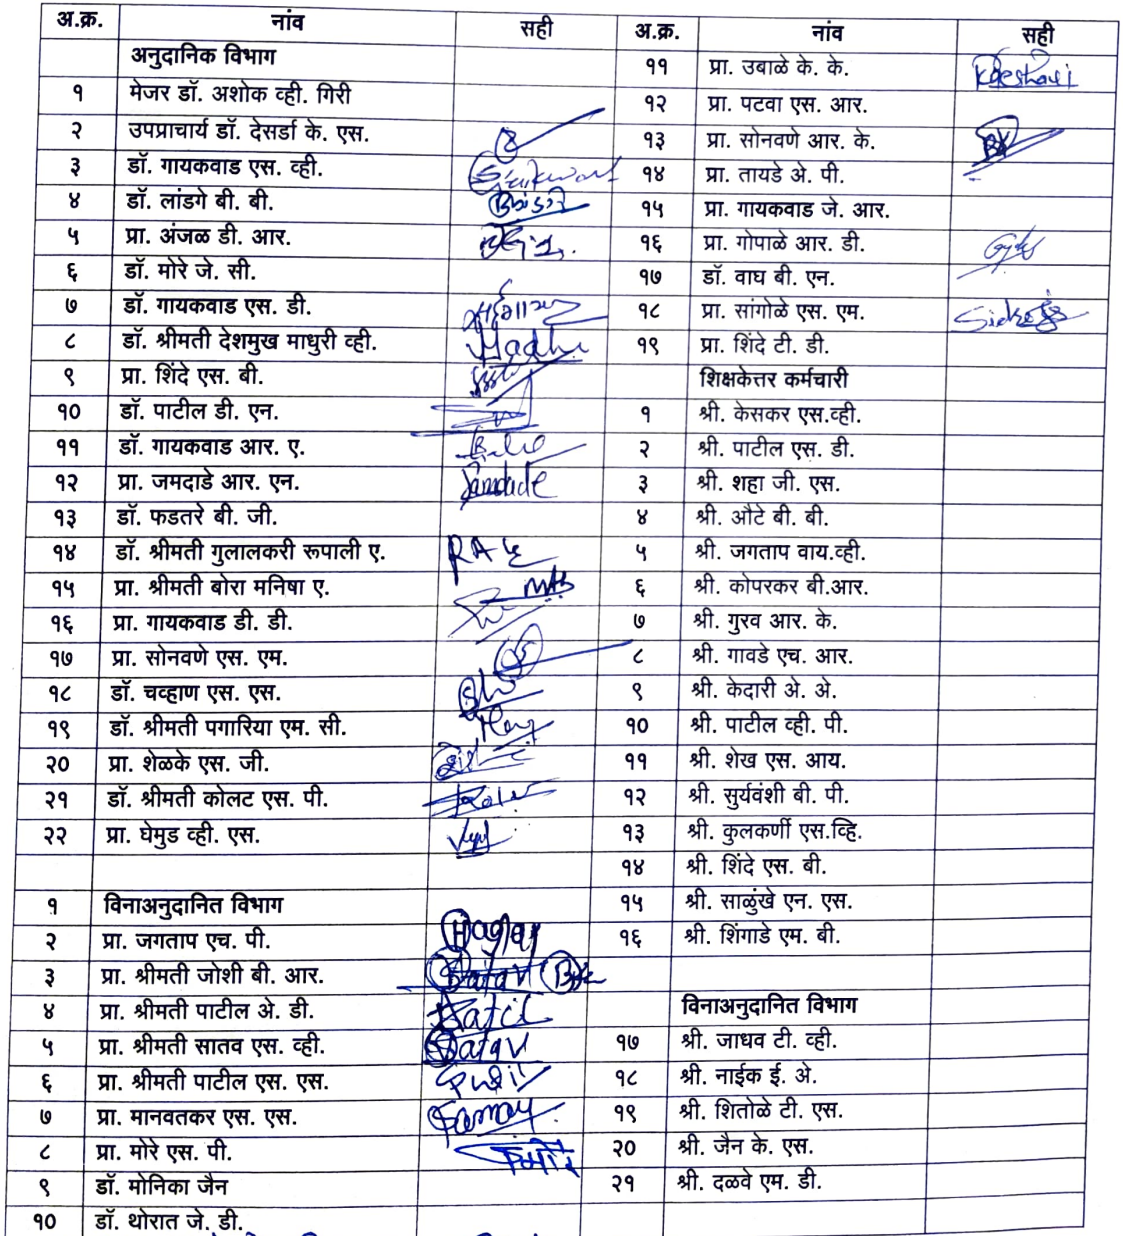 अ.क्र. नांव सही
अनुदानिक विभाग
१ मेजर डॉ. अशोक व्ही. गिरी
२ उपप्राचार्य डॉ. देसर्डा के. एस.
३ डॉ. गायकवाड एस. व्ही.
४ डॉ. लांडगे बी. बी.
५ प्रा. अंजळ डी. आर.
६ डॉ. मोरे जे. सी.
७ डॉ. गायकवाड एस. डी.
८ डॉ. श्रीमती देशमुख माधुरी व्ही.
९ प्रा. शिंदे एस. बी.
१० डॉ. पाटील डी. एन.
११ डॉ. गायकवाड आर. ए.
१२ प्रा. जमदाडे आर. एन. Jamdade
१३ डॉ. फडतरे बी. जी.
१४ डॉ. श्रीमती गुलालकरी रूपाली ए.
१५ प्रा. श्रीमती बोरा मनिषा ए.
१६ प्रा. गायकवाड डी. डी.
१७ प्रा. सोनवणे एस. एम.
१८ डॉ. चव्हाण एस. एस.
१९ डॉ. श्रीमती पगारिया एम. सी.
२० प्रा. शेळके एस. जी.
२१ डॉ. श्रीमती कोलट एस. पी.
२२ प्रा. घेमुड व्ही. एस.
१ विनाअनुदानित विभाग
२ प्रा. जगताप एच. पी.
३ प्रा. श्रीमती जोशी बी. आर.
४ प्रा. श्रीमती पाटील अे. डी.
५ प्रा. श्रीमती सातव एस. व्ही.
६ प्रा. श्रीमती पाटील एस. एस.
७ प्रा. मानवतकर एस. एस.
८ प्रा. मोरे एस. पी.
९ डॉ. मोनिका जैन
१० डॉ. थोरात जे. डी.
अ.क्र. नांव सही
११ प्रा. उबाळे के. के.
१२ प्रा. पटवा एस. आर.
१३ प्रा. सोनवणे आर. के.
१४ प्रा. तायडे अे. पी.
१५ प्रा. गायकवाड जे. आर.
१६ प्रा. गोपाळे आर. डी.
१७ डॉ. वाघ बी. एन.
१८ प्रा. सांगोळे एस. एम.
१९ प्रा. शिंदे टी. डी.
शिक्षकेत्तर कर्मचारी
१ श्री. केसकर एस.व्ही.
२ श्री. पाटील एस. डी.
३ श्री. शहा जी. एस.
४ श्री. औटे बी. बी.
५ श्री. जगताप वाय.व्ही.
६ श्री. कोपरकर बी.आर.
७ श्री. गुरव आर. के.
८ श्री. गावडे एच. आर.
९ श्री. केदारी अे. अे.
१० श्री. पाटील व्ही. पी.
११ श्री. शेख एस. आय.
१२ श्री. सुर्यवंशी बी. पी.
१३ श्री. कुलकर्णी एस.व्हि.
१४ श्री. शिंदे एस. बी.
१५ श्री. साळुंखे एन. एस.
१६ श्री. शिंगाडे एम. बी.
विनाअनुदानित विभाग
१७ श्री. जाधव टी. व्ही.
१८ श्री. नाईक ई. अे.
१९ श्री. शितोळे टी. एस.
२० श्री. जैन के. एस.
२१ श्री. दळवे एम. डी.